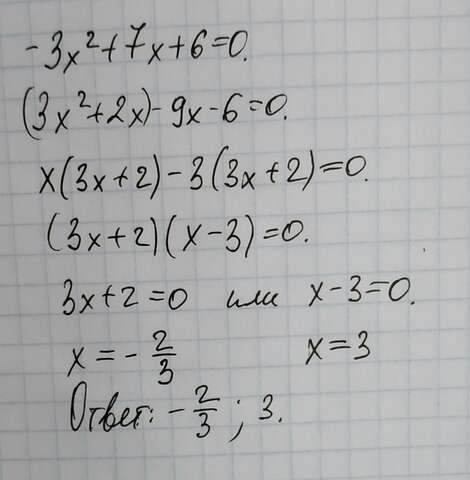 -3x²+7x+6=0.
(3x²+2x)-9x-6=0.
x(3x+2)-3(3x+2)=0.
(3x+2)(x-3)=0.
3x+2=0 или x-3=0.
x=-2/3 x=3
Ответ: -2/3; 3.